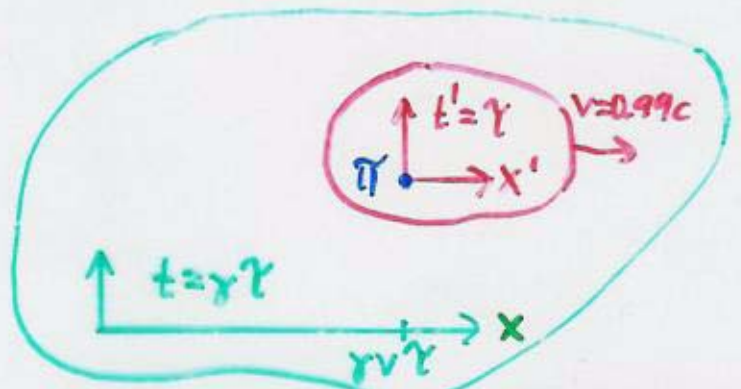 t'=τ
v=0.99c
π
x'
t=γτ
x
γvτ